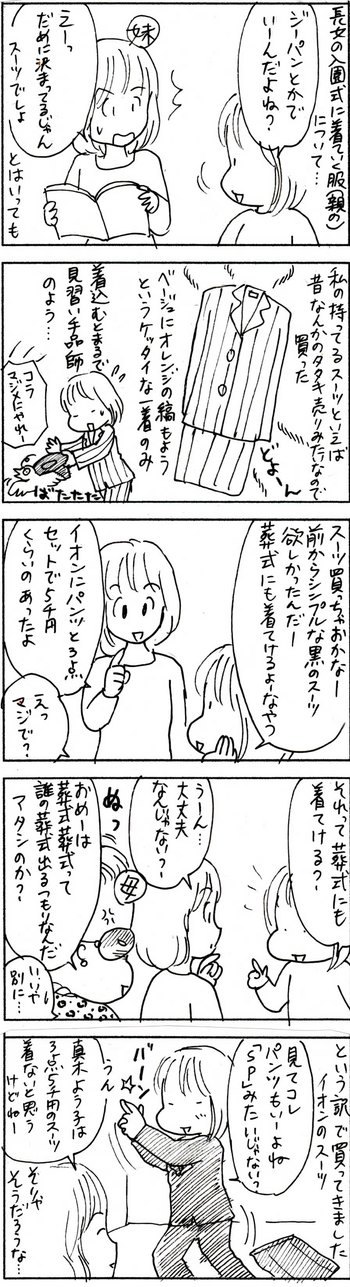 長女の入園式に着ていく服(親の)
について…
ジーパンとかで
いーんだよね?
妹
えーっ
だめに決まってるじゃん
スーツでしょ
とはいっても
私の持ってるスーツといえば
昔なんかのタタキ売りみたいなので
買った
どよーん
ベージュにオレンジの縞もよう
というケッタイな一着のみ
着込むとまるで
見習い手品師
のよう…
コラ
マジメにやれー
ばたたたた
スーツ買っちゃおかなー
前からシンプルな黒のスーツ
欲しかったんだー
葬式にも着てけるよーなやつ
イオンにパンツと3点
セットで5千円
くらいのあったよ
えっ
マジで?
それって葬式にも
着てける?
うーん…
大丈夫
なんじゃない?
ぬっ
母
おめーは
葬式葬式って
誰の葬式出るつもりなんだ
アタシのか?
いいや
別に…
という訳で買ってきました
イオンのスーツ
見てコレ
パンツもいーよね
「SP」みたいじゃない?
バーン
うん
真木よう子は
3点5千円のスーツ
着ないと思う
けどねー
そりゃ
そうだろうな…